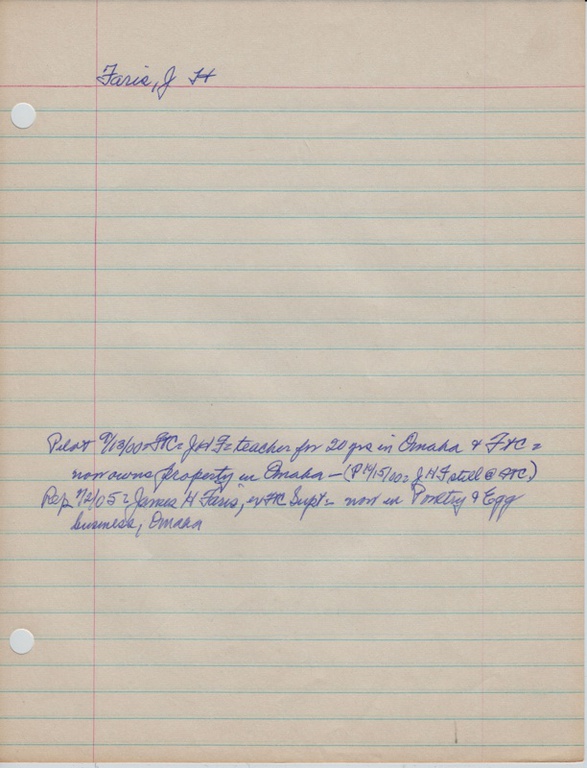 Faris, J H
Pilot 9/13/00 = FtC = J H F = teacher for 20 yrs in Omaha & FtC =
now owns property in Omaha — (P 11/15/00 = J H F still @ FtC)
Rep 7/2/05 = James H Faris, ex FtC Supt = now in Poultry & Egg
business, Omaha